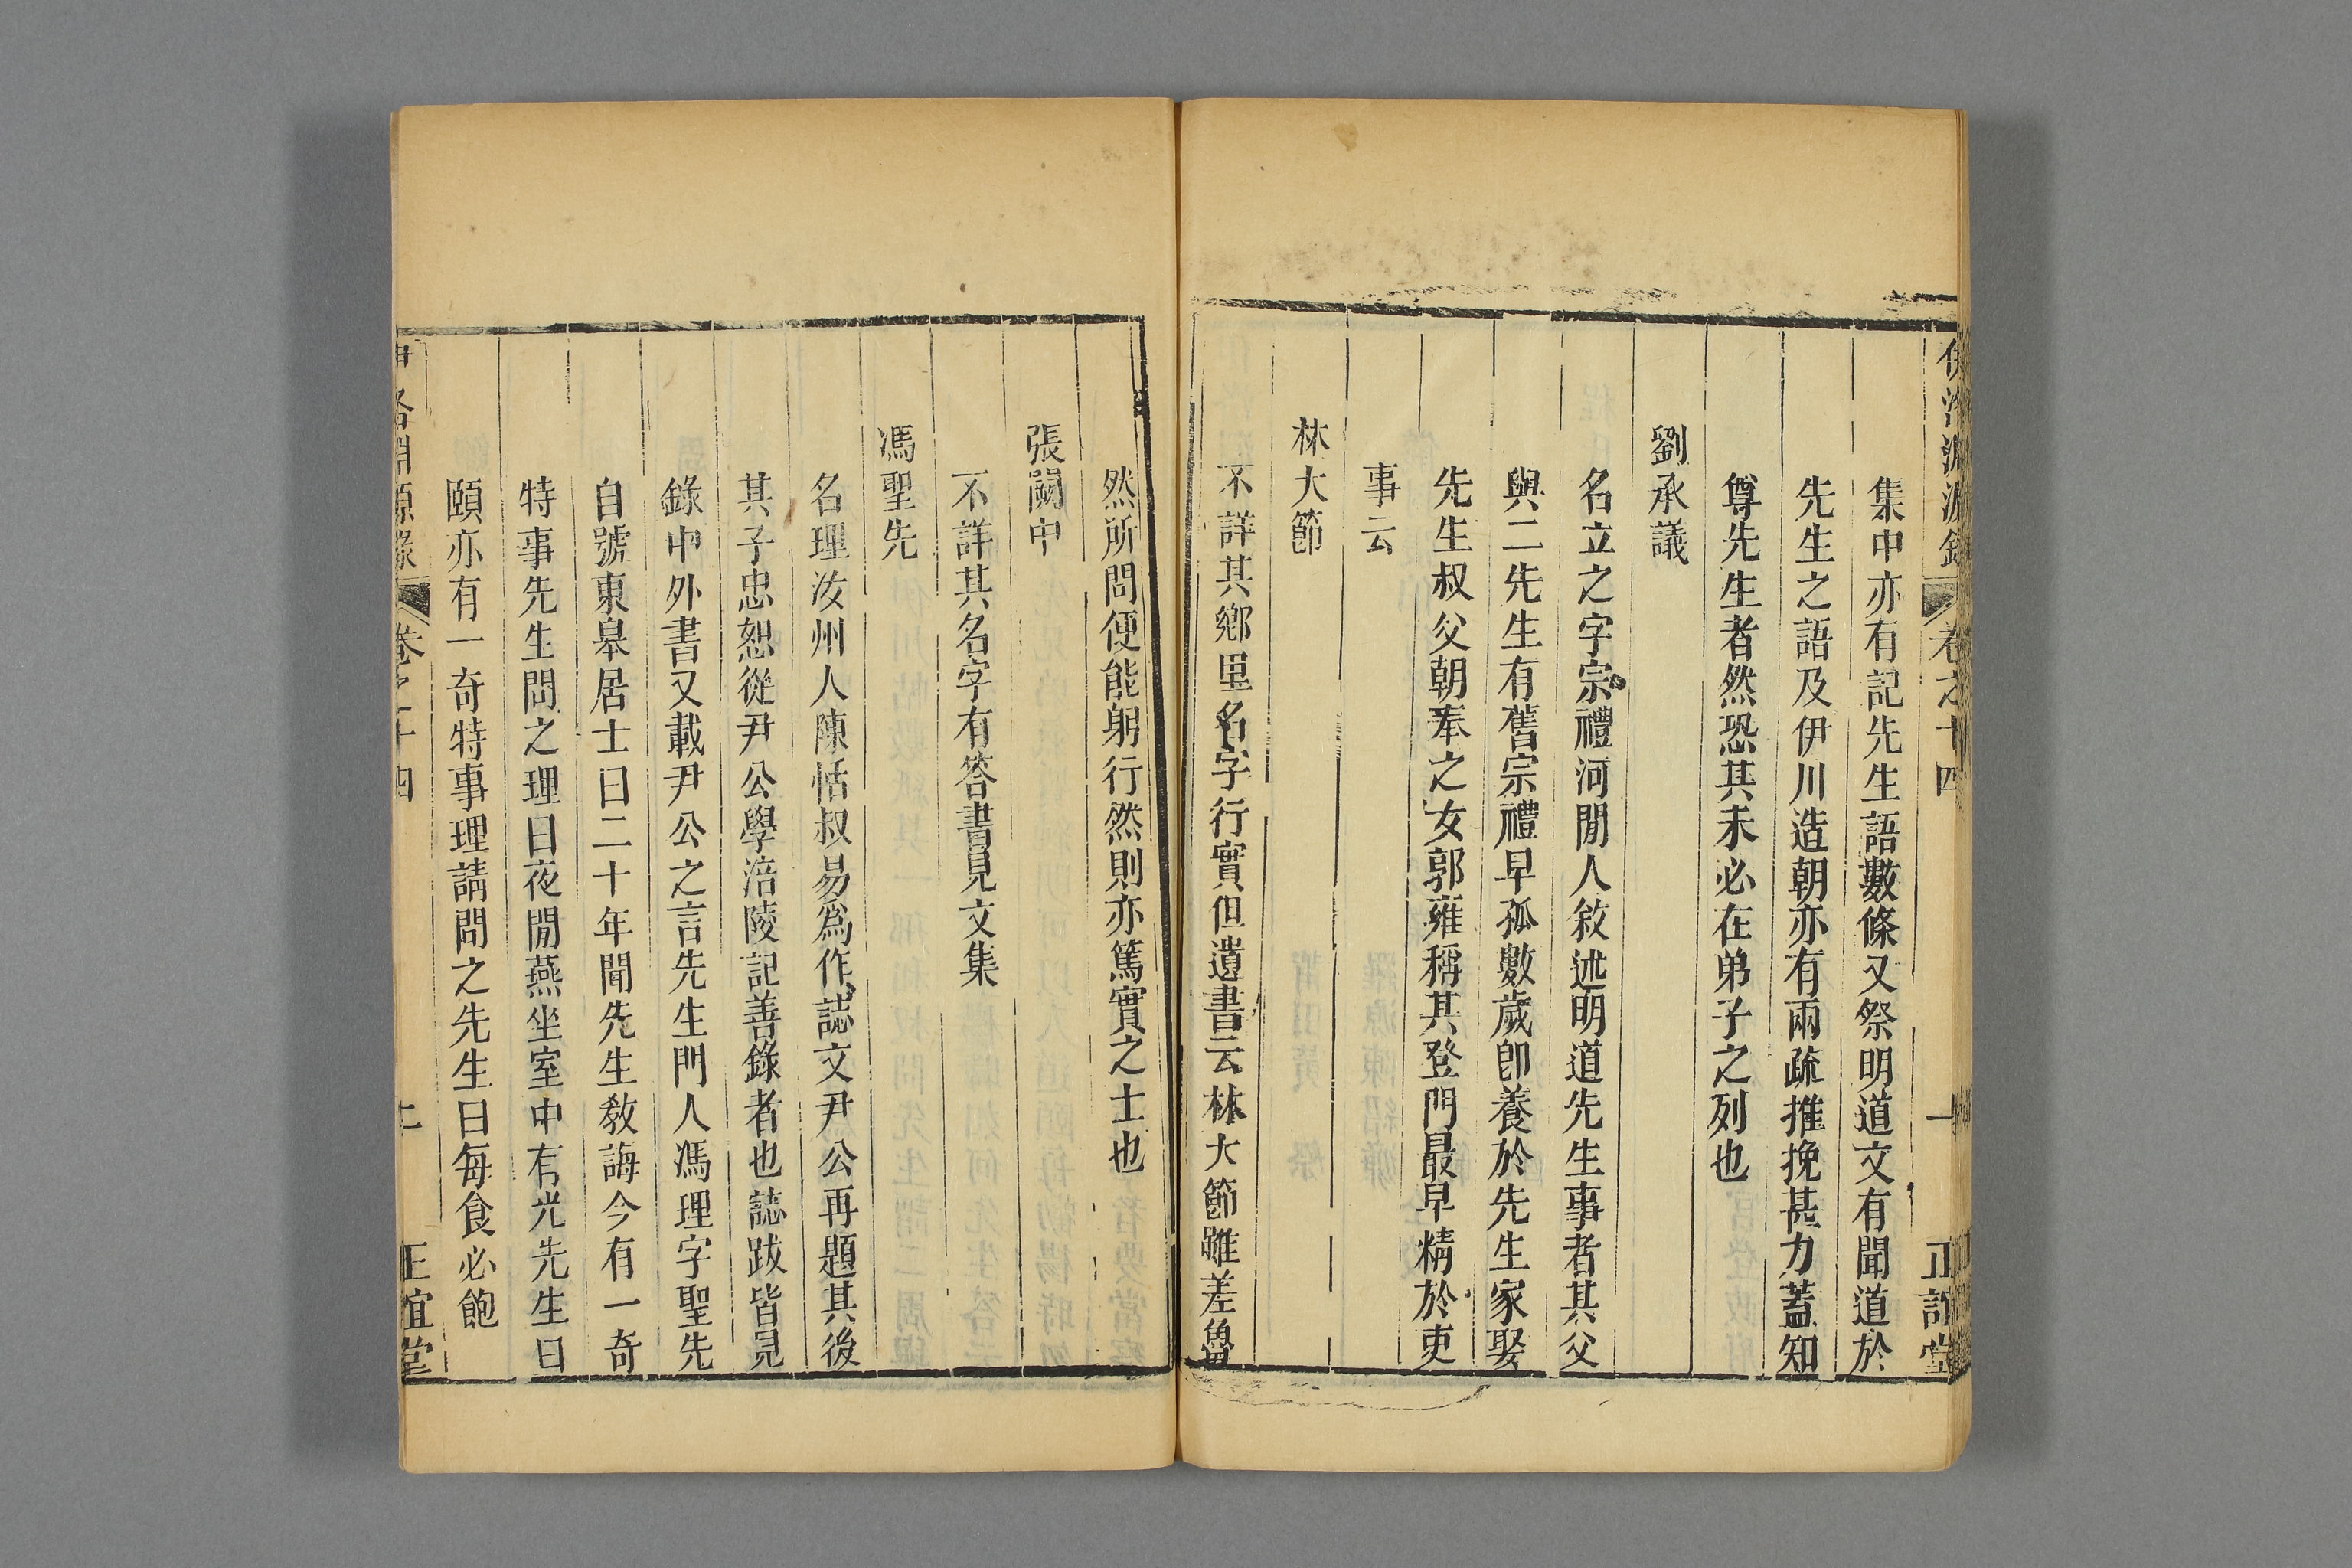 伊洛淵源錄 卷之十四 一 正誼堂
集中亦有記先生語數條又祭明道文有聞道於
先生之語及伊川造朝亦有兩疏推挽甚力蓋知
尊先生者然恐其未必在弟子之列也
劉承議
名立之字宗禮河閒人敘述明道先生事者其父
與二先生有舊宗禮早孤數歲卽養於先生家娶
先生叔父朝奉之女郭雍稱其登門最早精於吏
事云
林大節
不詳其鄉里名字行實但遺書云林大節雖差魯
然所問便能躬行然則亦篤實之士也
張閎中
不詳其名字有答書見文集
馮聖先
名理汝州人陳恬叔易爲作誌文尹公再題其後
其子忠恕從尹公學涪陵記善錄者也誌跋皆見
錄中外書又載尹公之言先生門人馮理字聖先
自號東皋居士曰二十年聞先生敎誨今有一奇
特事先生問之理曰夜閒燕坐室中有光先生曰
頤亦有一奇特事理請問之先生曰每食必飽
伊洛淵源錄 卷之十四 正誼堂